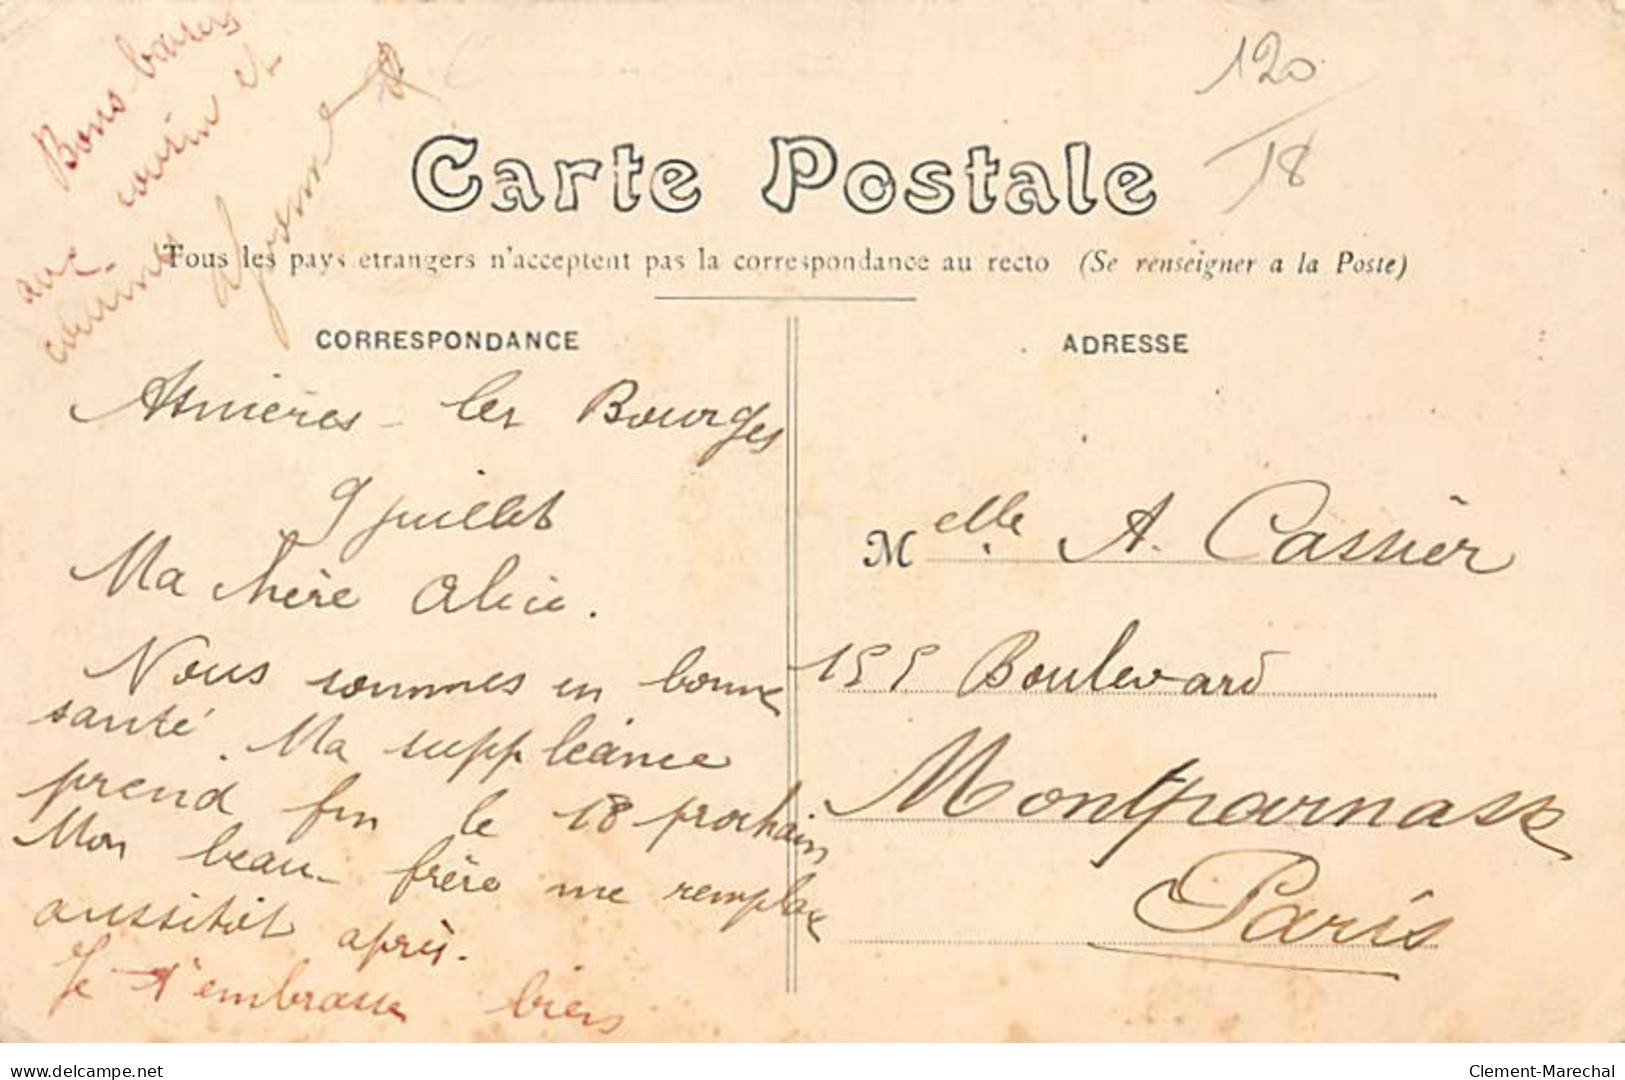 Bons baisers
aux cousin et
cousines
120
18
Carte Postale
Tous les pays etrangers n'acceptent pas la correspondance au recto (Se renseigner a la Poste)
CORRESPONDANCE
Asnières - les Bourges
9 juillet
Ma chère Alice.
Nous sommes en bonne
santé. Ma suppléance
prend fin le 18 prochain
Mon beau-frère me remplace
aussitôt après.
Je t'embrasse bien
ADRESSE
Melle A. Cassier
155 Boulevard
Montparnasse
Paris
delcampe.net
Clement-Marechal